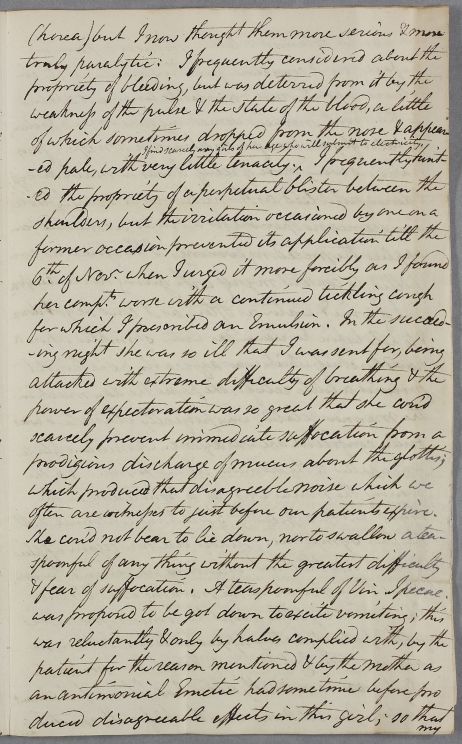 Chorea) but I now thought them more serious & more
truly paralytic: I frequently considered about the
propriety of bleeding, but was deterred from it by the
weakness of the pulse & the state of the blood, a little
of which sometimes dropped from the nose & appear-
I find scarcely any girls of her age who will submit to electricity,
-ed pale, with very little tenacity. I frequently hint-
-ed the propriety of a perpetual blister between the
shoulders, but the irritation occasioned by one on a
former occasion prevented its application till the
6th. of Novr. when I urged it more forcibly as I found
her compt. worse with a continued tickling cough
for which I prescribed an Emulsion. In the succeed-
-ing night she was so ill that I was sent for, being
attacked with extreme difficulty of breathing & the
power of expectoration was so great that she could
scarcely prevent immediate suffocation from a
prodigious discharge of mucus about the glottis;
which produced that disagreeble noise which we
often are witnesses to just before our patients expire.
She could not bear to lie down, nor to swallow a tea-
spoonful of any thing without the greatest difficulty
& fear of suffocation. A teaspoonful of Vin Ipecac.
was proposed to be got down to excite vomiting; this
was reluctantly & only by halves complied with, by the
patient for the reason mentioned & by the mother as
an antimonial Emetic had some time before pro
duced disagreeable effects in this girl; so that
my